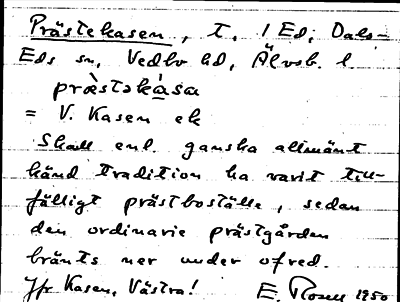 Prästekasen, t. i Ed; Dals-
Eds sn, Vedbo hd, Älvsb. l.
præ̀stəka̱sa
= V. Kasen ek
Skall enl. ganska allmänt
känd tradition ha varit till-
fälligt prästboställe, sedan
den ordinarie prästgården
bränts ner under ofred.
Jfr Kasen, Västra! E. Rosell 1950